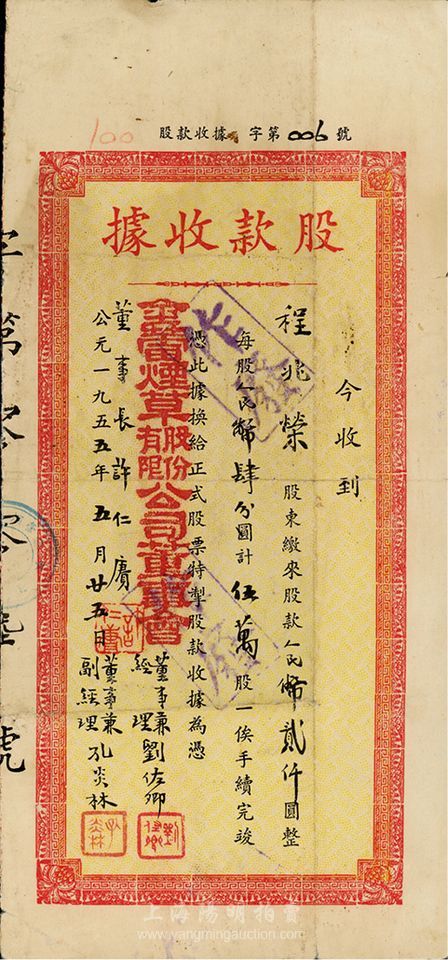 100
股款收據 字第006號
股款收據
今收到
程兆榮股東繳來股款人民幣貳仟圓整
每股人民幣肆分圓計伍萬股一俟手續完竣
憑此據換給正式股票特掣股款收據為憑
煙草股份有限公司董事會
董事長許仁賡
董事兼經理劉佐卿
董事兼副經理孔炎林
公元一九五五年五月廿五日
作廢
字第 號
上海陽明拍賣
www.yangmingauction.com